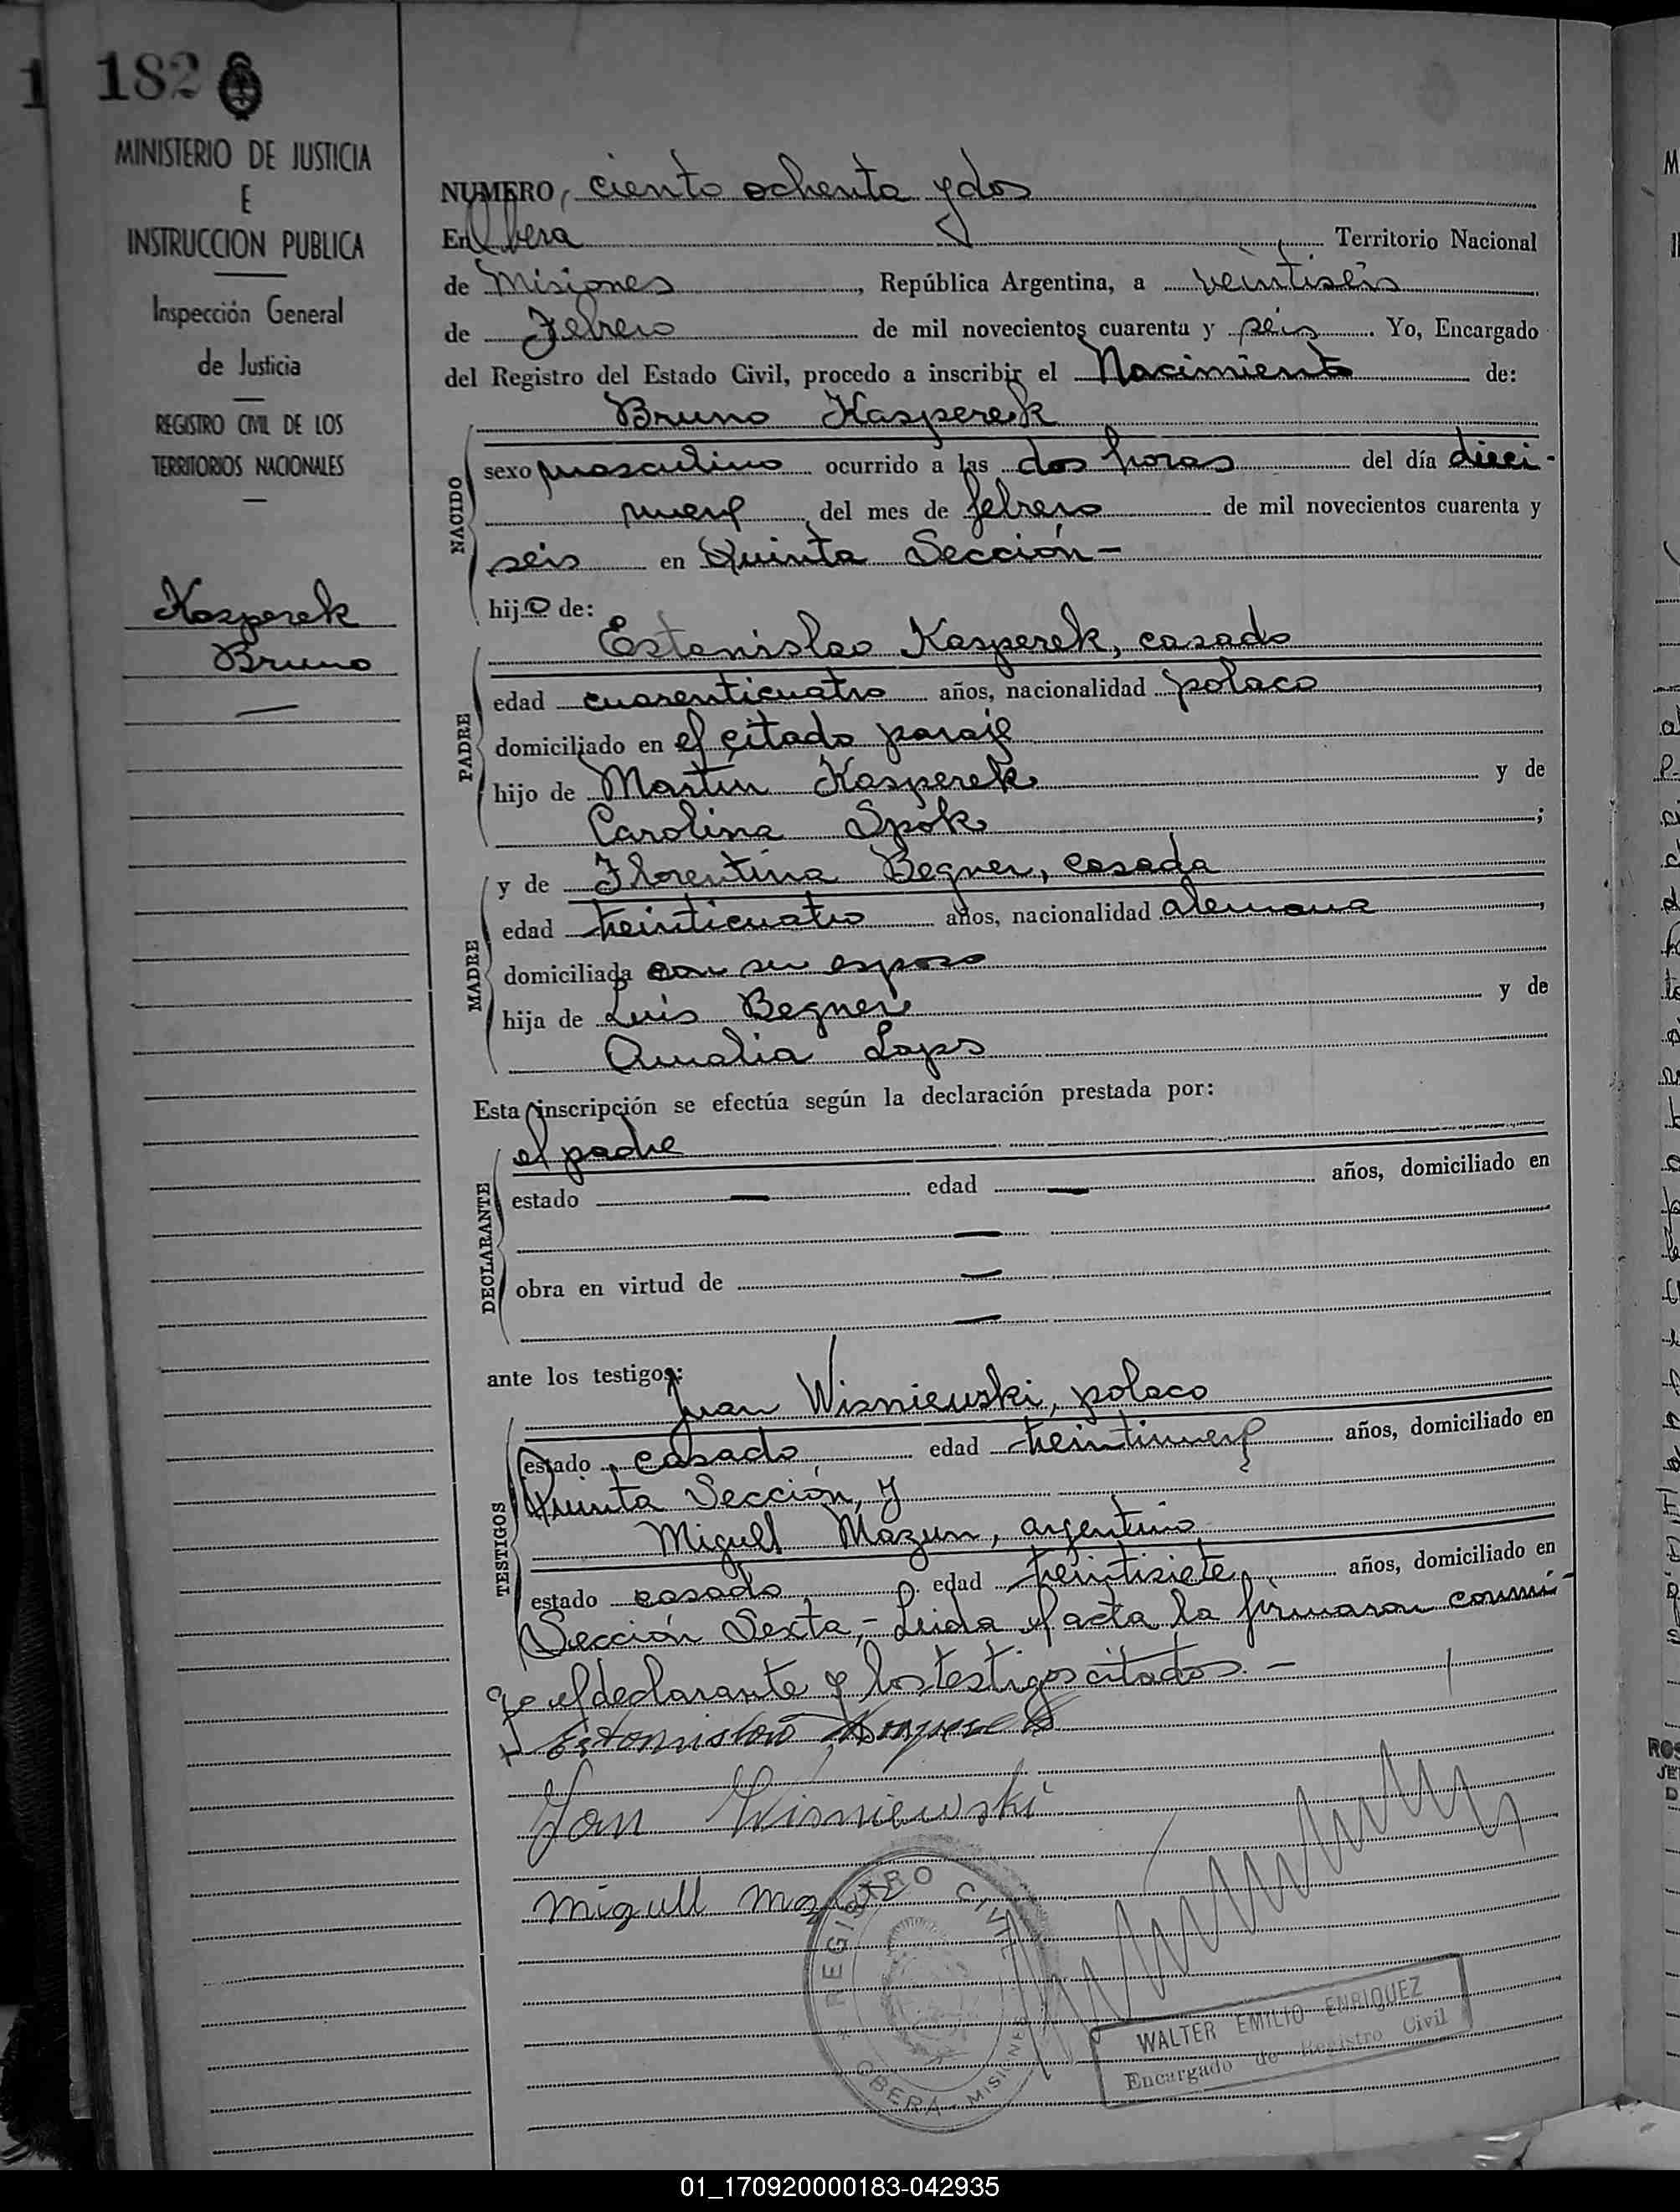 1 182
MINISTERIO DE JUSTICIA
E
INSTRUCCION PUBLICA
Inspección General
de Justicia
REGISTRO CIVIL DE LOS
TERRITORIOS NACIONALES
Kasperek
Bruno
NUMERO, ciento ochenta y dos
En Obera Territorio Nacional
de Misiones, República Argentina, a veintiseis
de Febrero de mil novecientos cuarenta y seis. Yo, Encargado
del Registro del Estado Civil, procedo a inscribir el Nacimiento de:
Bruno Kasperek
NACIDO
sexo masculino ocurrido a las dos horas del día dieci-
nueve del mes de febrero de mil novecientos cuarenta y
seis en Quinta Sección-
hijo de:
Estanislao Kasperek, casado
PADRE
edad cuarenticuatro años, nacionalidad polaco
domiciliado en el citado paraje
hijo de Martin Kasperek y de
Carolina Spók;
y de Florentina Begner, casada
MADRE
edad treinticuatro años, nacionalidad alemana
domiciliada con su esposo
hija de Luis Begner y de
Amalia Laps
Esta inscripción se efectúa según la declaración prestada por:
el padre
DECLARANTE
estado — edad — años, domiciliado en
—
obra en virtud de —
—
ante los testigos:
Juan Wisniewski, polaco
TESTIGOS
estado casado, edad treintinueve años, domiciliado en
Quinta Sección, y
Miguel Mazun, argentino
estado casado edad treintisiete, años, domiciliado en
Sección Sexta,- Leida el acta la firmaron conmi-
go el declarante y los testigos citados.-
Estanislao Kasperek
Jan Wisniewski
Migull
REGISTRO CIVIL
OBERA - MISIONES
WALTER EMILIO ENRIQUEZ
Encargado de Registro Civil
01_170920000183-042935